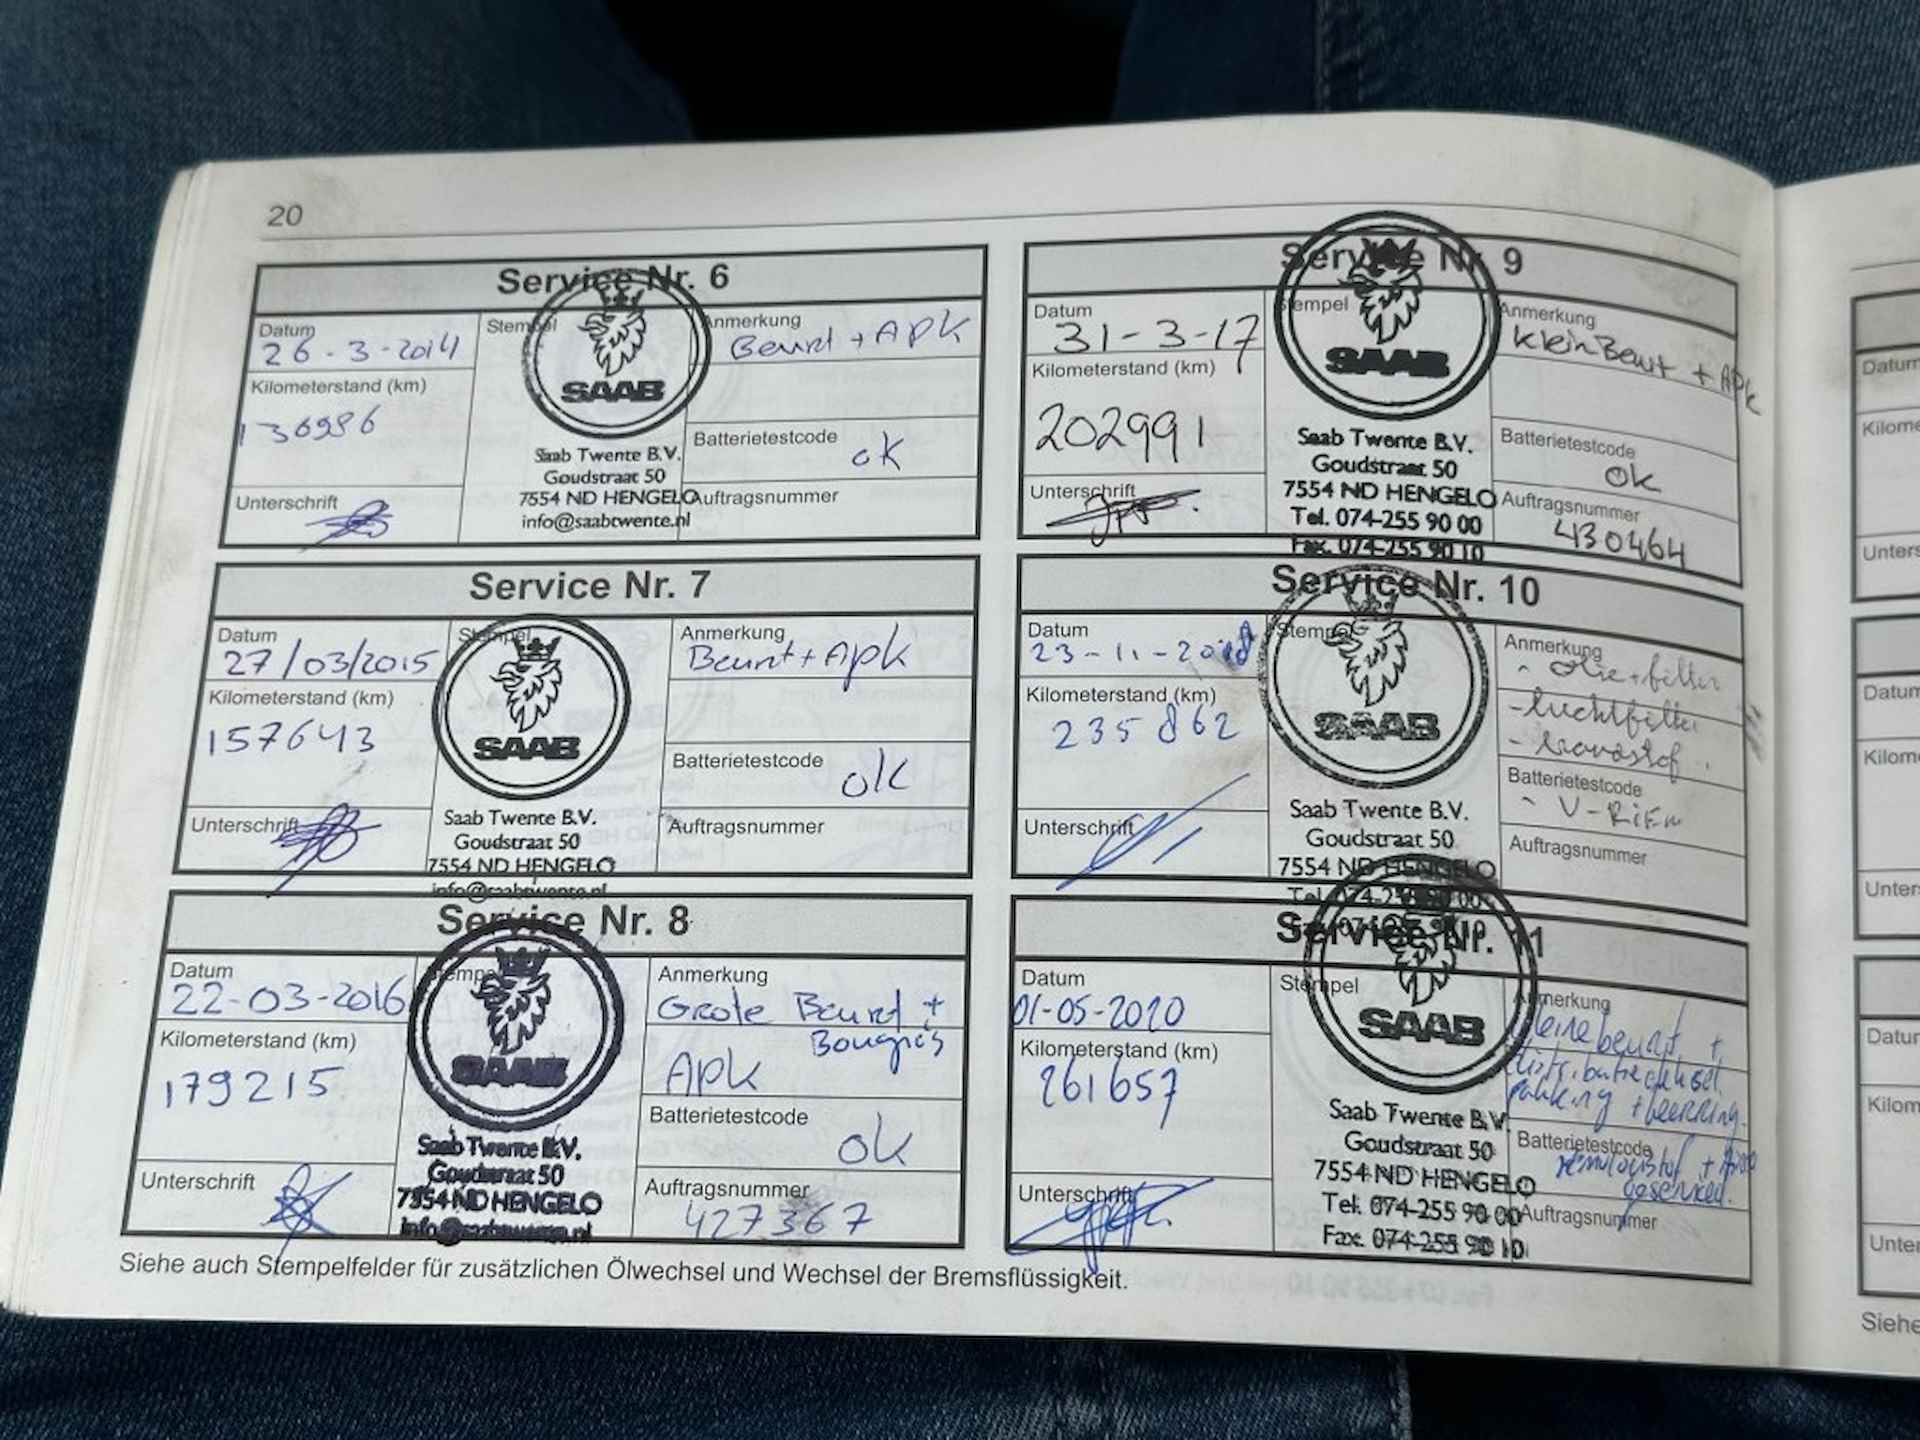 20
Service Nr. 6
Datum
26-3-2014
Kilometerstand (km)
136986
Unterschrift
Stempel
SAAB
Saab Twente B.V.
Goudstraat 50
7554 ND HENGELO
info@saabtwente.nl
Anmerkung
Beurt + APK
Batterietestcode
ok
Auftragsnummer
Service Nr. 7
Datum
27/03/2015
Kilometerstand (km)
157643
Unterschrift
Stempel
SAAB
Saab Twente B.V.
Goudstraat 50
7554 ND HENGELO
info@saabtwente.nl
Anmerkung
Beurt + Apk
Batterietestcode
ok
Auftragsnummer
Service Nr. 8
Datum
22-03-2016
Kilometerstand (km)
179215
Unterschrift
Stempel
SAAB
Saab Twente B.V.
Goudstraat 50
7554 ND HENGELO
info@saabtwente.nl
Anmerkung
Grote Beurt +
Bougies
Apk
Batterietestcode
ok
Auftragsnummer
427367
Service Nr. 9
Datum
31-3-17
Kilometerstand (km)
202991
Unterschrift
Stempel
SAAB
Saab Twente B.V.
Goudstraat 50
7554 ND HENGELO
Tel. 074-255 90 00
Fax. 074-255 90 10
Anmerkung
klein Beurt + APK
Batterietestcode
ok
Auftragsnummer
430464
Service Nr. 10
Datum
23-11-2018
Kilometerstand (km)
235862
Unterschrift
Stempel
SAAB
Saab Twente B.V.
Goudstraat 50
7554 ND HENGELO
Tel. 074-255 90 00
Fax. 074-255 90 10
Anmerkung
- Olie + filter
- luchtfilter
Batterietestcode
- V-RiEm
Auftragsnummer
Service Nr. 11
Datum
01-05-2020
Kilometerstand (km)
261657
Unterschrift
Stempel
SAAB
Saab Twente B.V.
Goudstraat 50
7554 ND HENGELO
Tel. 074-255 90 00
Fax. 074-255 90 10
Anmerkung
kleine beurt +
distributiedeksel
pakking + keerring
Batterietestcode
remvloeistof +
Auftragsnummer
Siehe auch Stempelfelder für zusätzlichen Ölwechsel und Wechsel der Bremsflüssigkeit.
Datum
Kilome
Unters
Datum
Kilom
Unter
Datur
Kilom
Unter
Siehe